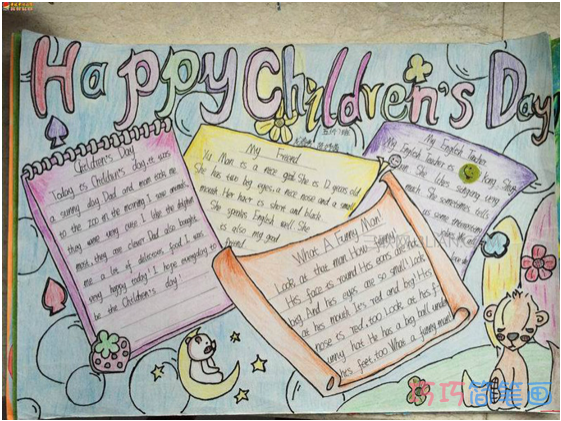 Happy Children's Day
Children's Day
Today is Children's day, it was
a sunny day Dad and mom took me
to the zoo in the morning I saw animals,
they were very cute I like the dolphin
most, they are clever Dad also bought
me a lot of delicious food I was
very happy today! I hope everyday to
be the Children's day!
My Friend
Yu Man is a nice girl She is 12 years old
She has two big eyes, a nice nose and a small
mouth Her hair is short and black.
She speaks English well She
is also my good
friend
My English Teacher
My English Teacher is long, She
She likes singing very
much She sometimes tells
us some
What A Funny Man!
Look at that man How funny!
His face is round His ears are
big And his eyes are so small Look
at his mouth It's red and big! His
nose is red, too Look at his f
unny hat He has a big ball under
his feet, too What a funny man!
巧巧简笔画